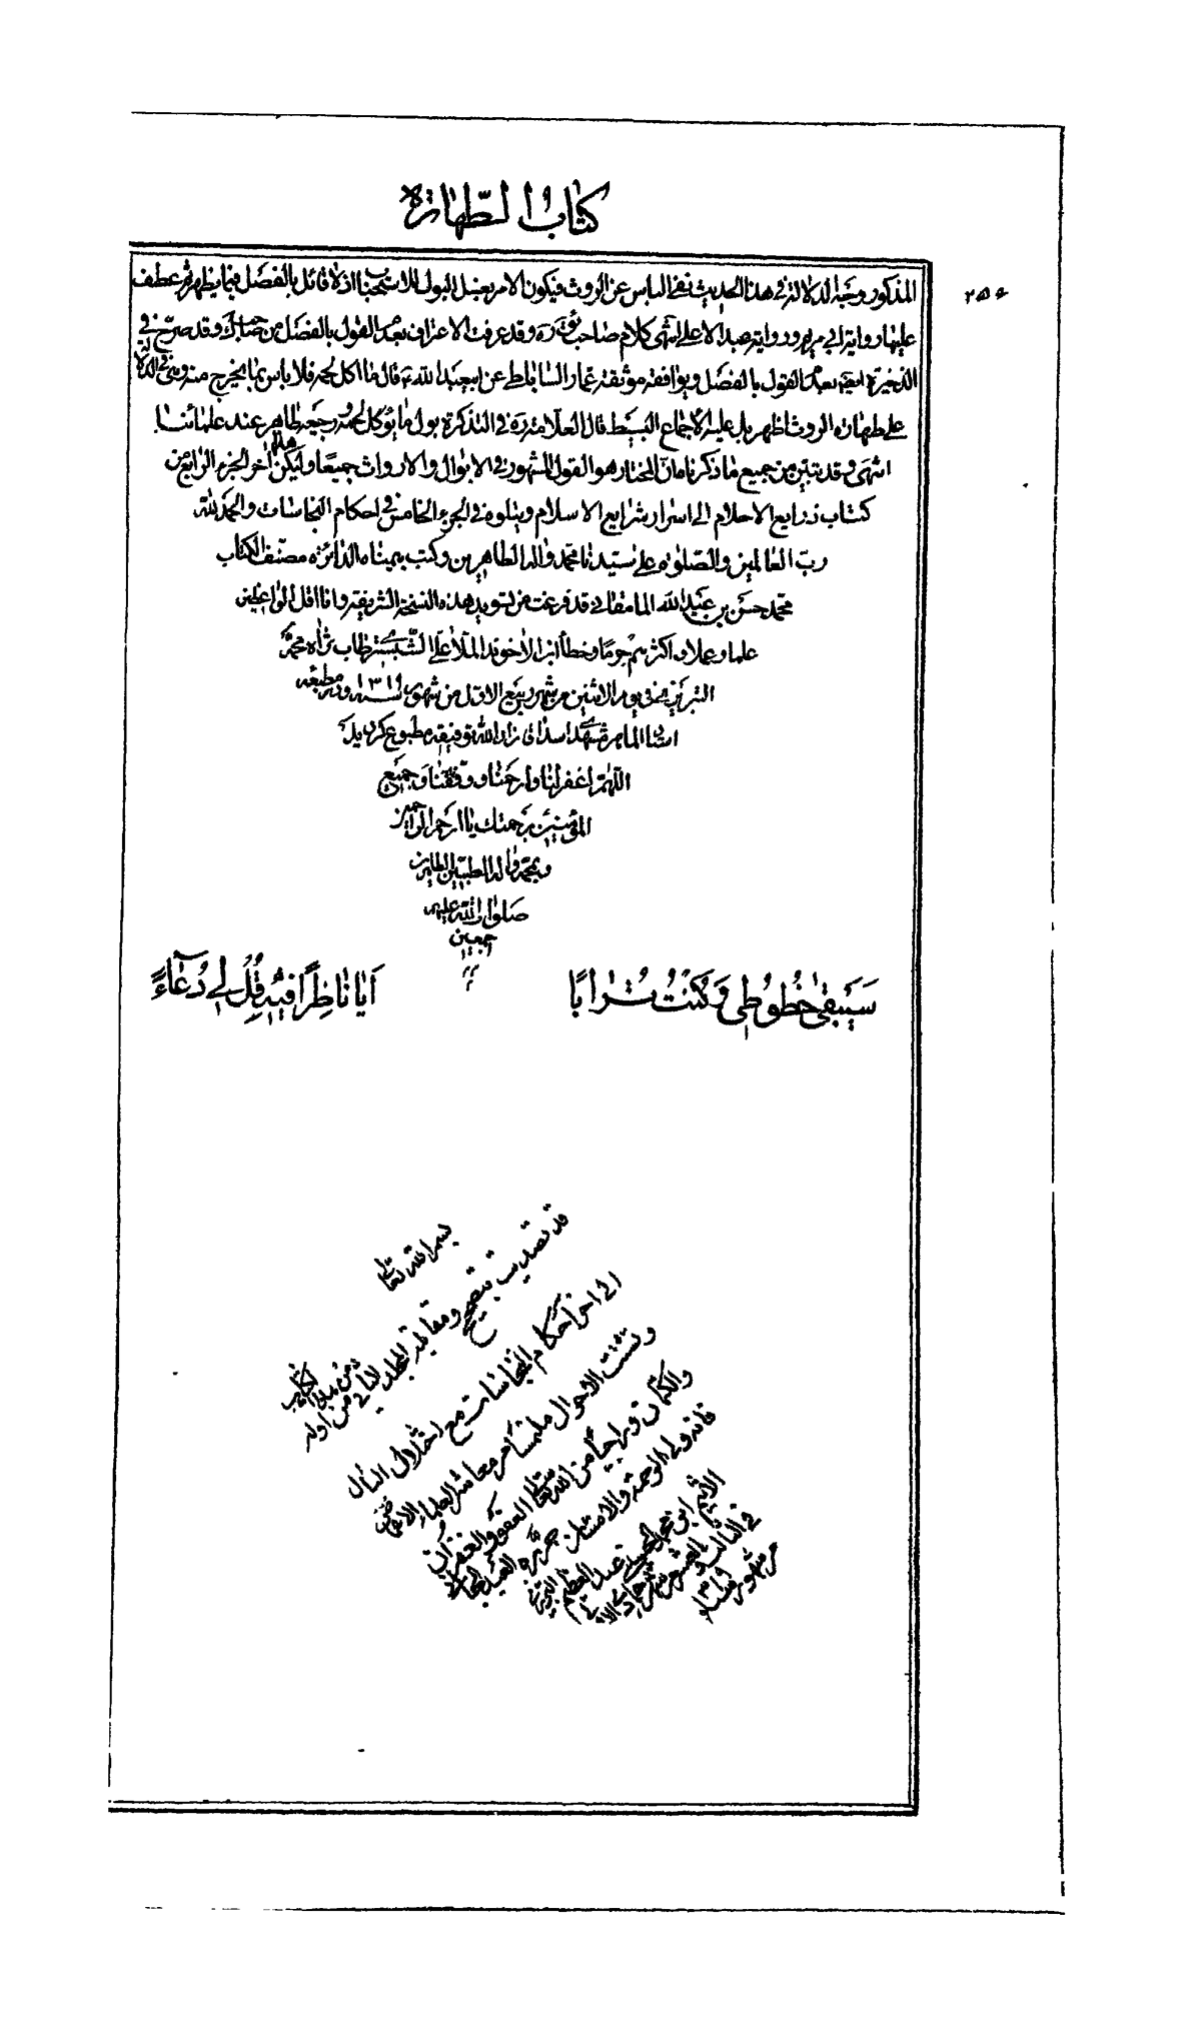 كتاب الطهارة
٢٥٤
المذكور وجه الدلالة في هذا الحديث نفي الباس عن الروث فيكون الامر بغسل البول للاستحباب اذ لا قائل بالفصل فيما يظهر ثم عطف
عليها رواية ابي مريم ورواية عبد الاعلى انتهى كلام صاحب ئق ره وقد عرفت الاعتراف بعدم القول بالفصل من صاحب ك وقد صرح في
الذخيرة ايضا بعدم القول بالفصل ويوافقه موثقة عمار الساباطي عن ابيعبد الله ع قال ما اكل لحمه فلا باس بما يخرج منه وهي في الدلالة
على طهارة الروث اظهر بل عليه الاجماع البسيط قال العلامة ره في التذكرة بول ما يؤكل لحمه ورجيعه طاهر عند علمائنا
انتهى وقد تبين من جميع ما ذكرنا ان المختار هو القول المشهور في الابوال والارواث جميعا وليكن هذا اخر الجزء الرابع من
كتاب ذرايع الاحلام الى اسرار شرايع الاسلام ويتلوه في الجزء الخامس في احكام النجاسات والحمد لله
رب العالمين والصلوة على سيدنا محمد واله الطاهرين وكتب بيمناه الداثرة مصنف الكتاب
محمد حسن بن عبد الله المامقاني قد فرغت من تسويد هذه النسخة الشريفة وانا اقل الواعظين
علما وعملا واكثرهم جرما وخطأ ابن الاخوند الملا علي التبستري طاب ثراه محمد
التبريزي في يوم الاثنين من شهر ربيع الاول من شهور سنه ١٣١٩ ودر مطبعه
استاد الماهر مشهدي اسد اقا زاد الله توفيقه مطبوع گرديد
اللهم اغفر لنا وارحمنا ووفقنا وجميع
المؤمنين برحمتك يا ارحم الراحمين
وبمحمد واله الطيبين الطاهرين
صلوات الله عليهم
اجمعين
سَيَبقى خُطُوطي وَكُنتُ تُرابًا
اَيا ناظِرًا فيهِ قُل لي دُعاءً
بسم الله تعالى
قد تصديت بتصحيح ومقابلة المجلد الثاني من اوله
من هذا الكتاب
الى اخر احكام النجاسات مع اختلال البال
وتشتت الاحوال ملتمسا من معاشر العلماء الاعلام
والكتاب وراجيا من الله تعالى العفو والغفران
فانه ولي الرحمة والامتنان حرره العبد الجاني
الاثيم ابن محمد الحسين عبد العظيم التبريزي
في الثالث والعشرين من شهر جمادي الاولى
من شهور سنة ١٣١٩